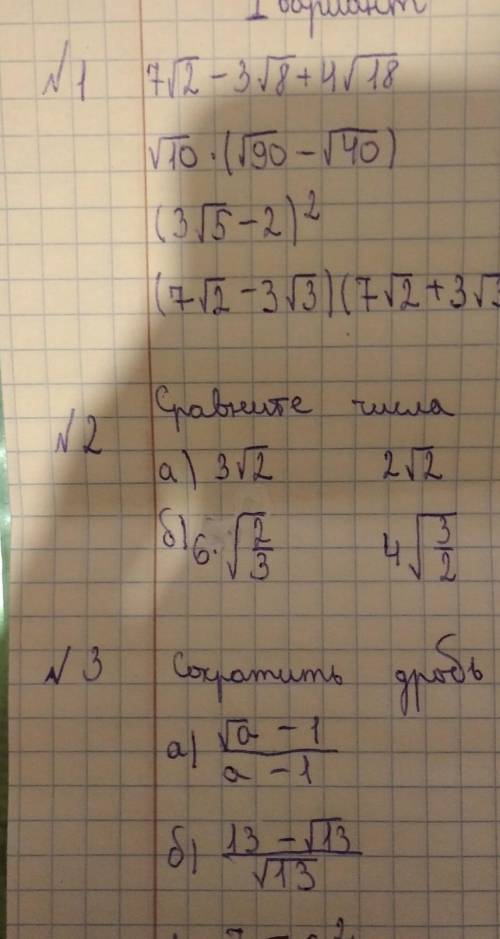 I вариант
№1 7√2 - 3√8 + 4√18
√10 · (√90 - √40)
(3√5 - 2)²
(7√2 - 3√3)(7√2 + 3√3
№2 Сравните числа
а) 3√2 2√2
б) 6·√(2/3) 4√(3/2)
№3 Сократить дробь
а) (√a - 1)/(a - 1)
б) (13 - √13)/√13